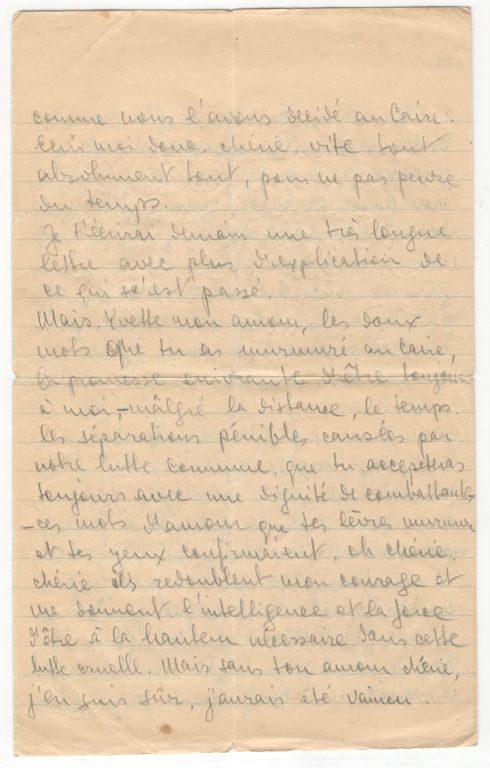 comme nous l'avons decidé au Caire.
Ecris moi donc, chérie, vite tout
absolument tout, pour ne pas perdre
du temps.
Je t'écrirai demain une très longue
lettre avec plus d'explication de
ce qui s'est passé.
Mais, Yvette mon amour, les doux
mots que tu as murmuré au Caire,
la promesse enivrante d'être toujours
à moi, - mâlgré la distance, le temps
les séparations pénibles causées par
notre lutte commune, que tu accepteras
toujours avec une dignité de combattante -
- ces mots d'amour que tes lèvres
et tes yeux confirmaient, oh chérie,
chérie ils redoublent mon courage et
me donnent l'intelligence et la force
d'être à la hauteur nécessaire dans cette
lutte cruelle. Mais sans ton amour chérie,
j'en suis sûr, j'aurais été vaincu.